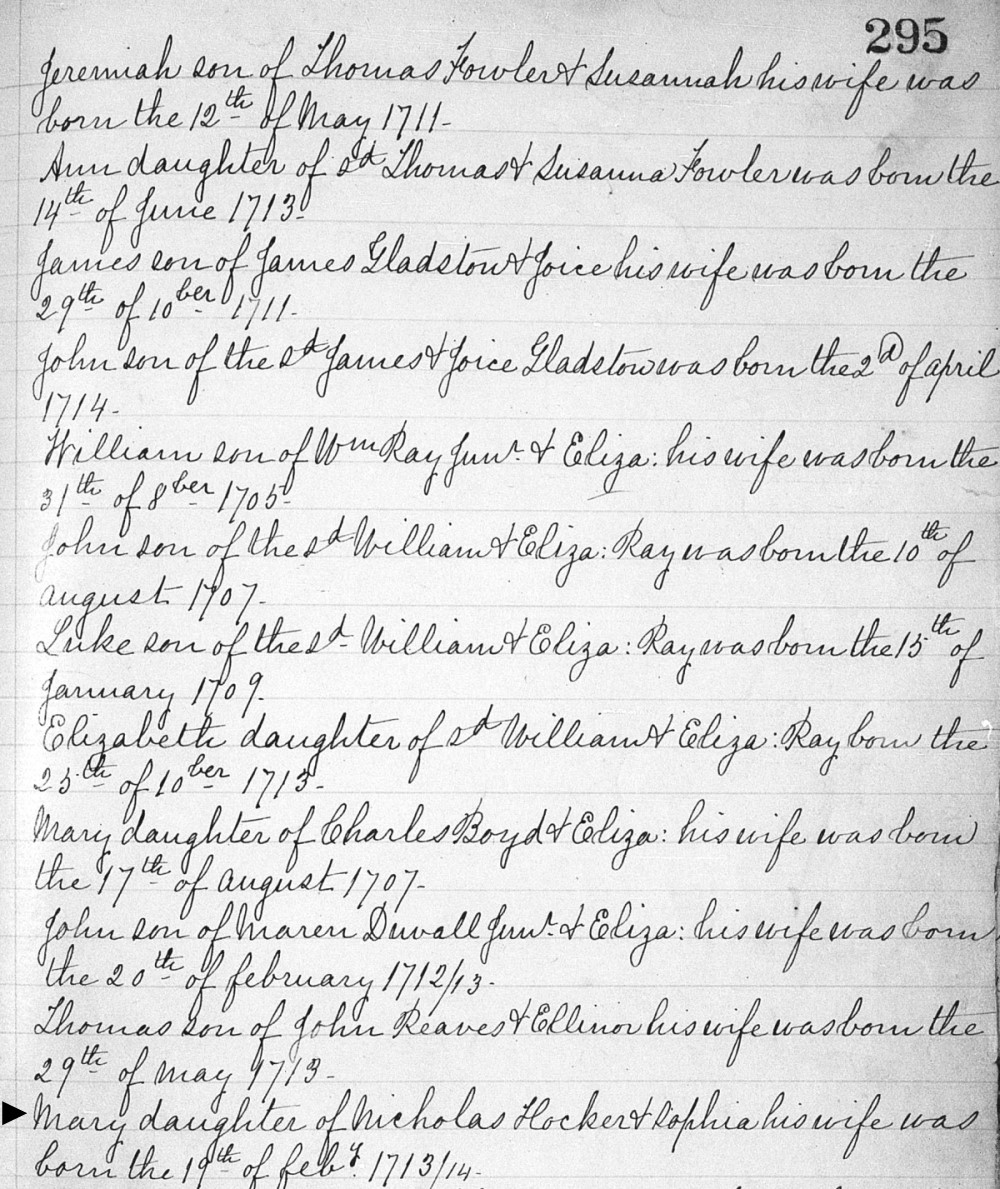 295
Jeremiah son of Thomas Fowler & Susannah his wife was
born the 12th of May 1711-
Ann daughter of sd Thomas & Susanna Fowler was born the
14th of June 1713.
James son of James Gladstow & Joice his wife was born the
29th of 10ber 1711-
John son of the sd James & Joice Gladstow was born the 2d of april
1714-
William son of Wm Ray Junr. & Eliza: his wife was born the
31th of 8ber 1705-
John son of the sd William & Eliza: Ray was born the 10th of
august 1707-
Luke son of the sd- William & Eliza: Ray was born the 15th of
January 1709.
Elizabeth daughter of sd William & Eliza: Ray born the
25th of 10ber 1713-
Mary daughter of Charles Boyd & Eliza: his wife was born
the 17th of august 1707-
John son of Maren Duvall Junr. & Eliza: his wife was born
the 20th of february 1712/13-
Thomas son of John Reaves & Ellinor his wife was born the
29th of may 1713-
Mary daughter of Nicholas Hocker & Sophia his wife was
born the 19th of feby. 1713/14-